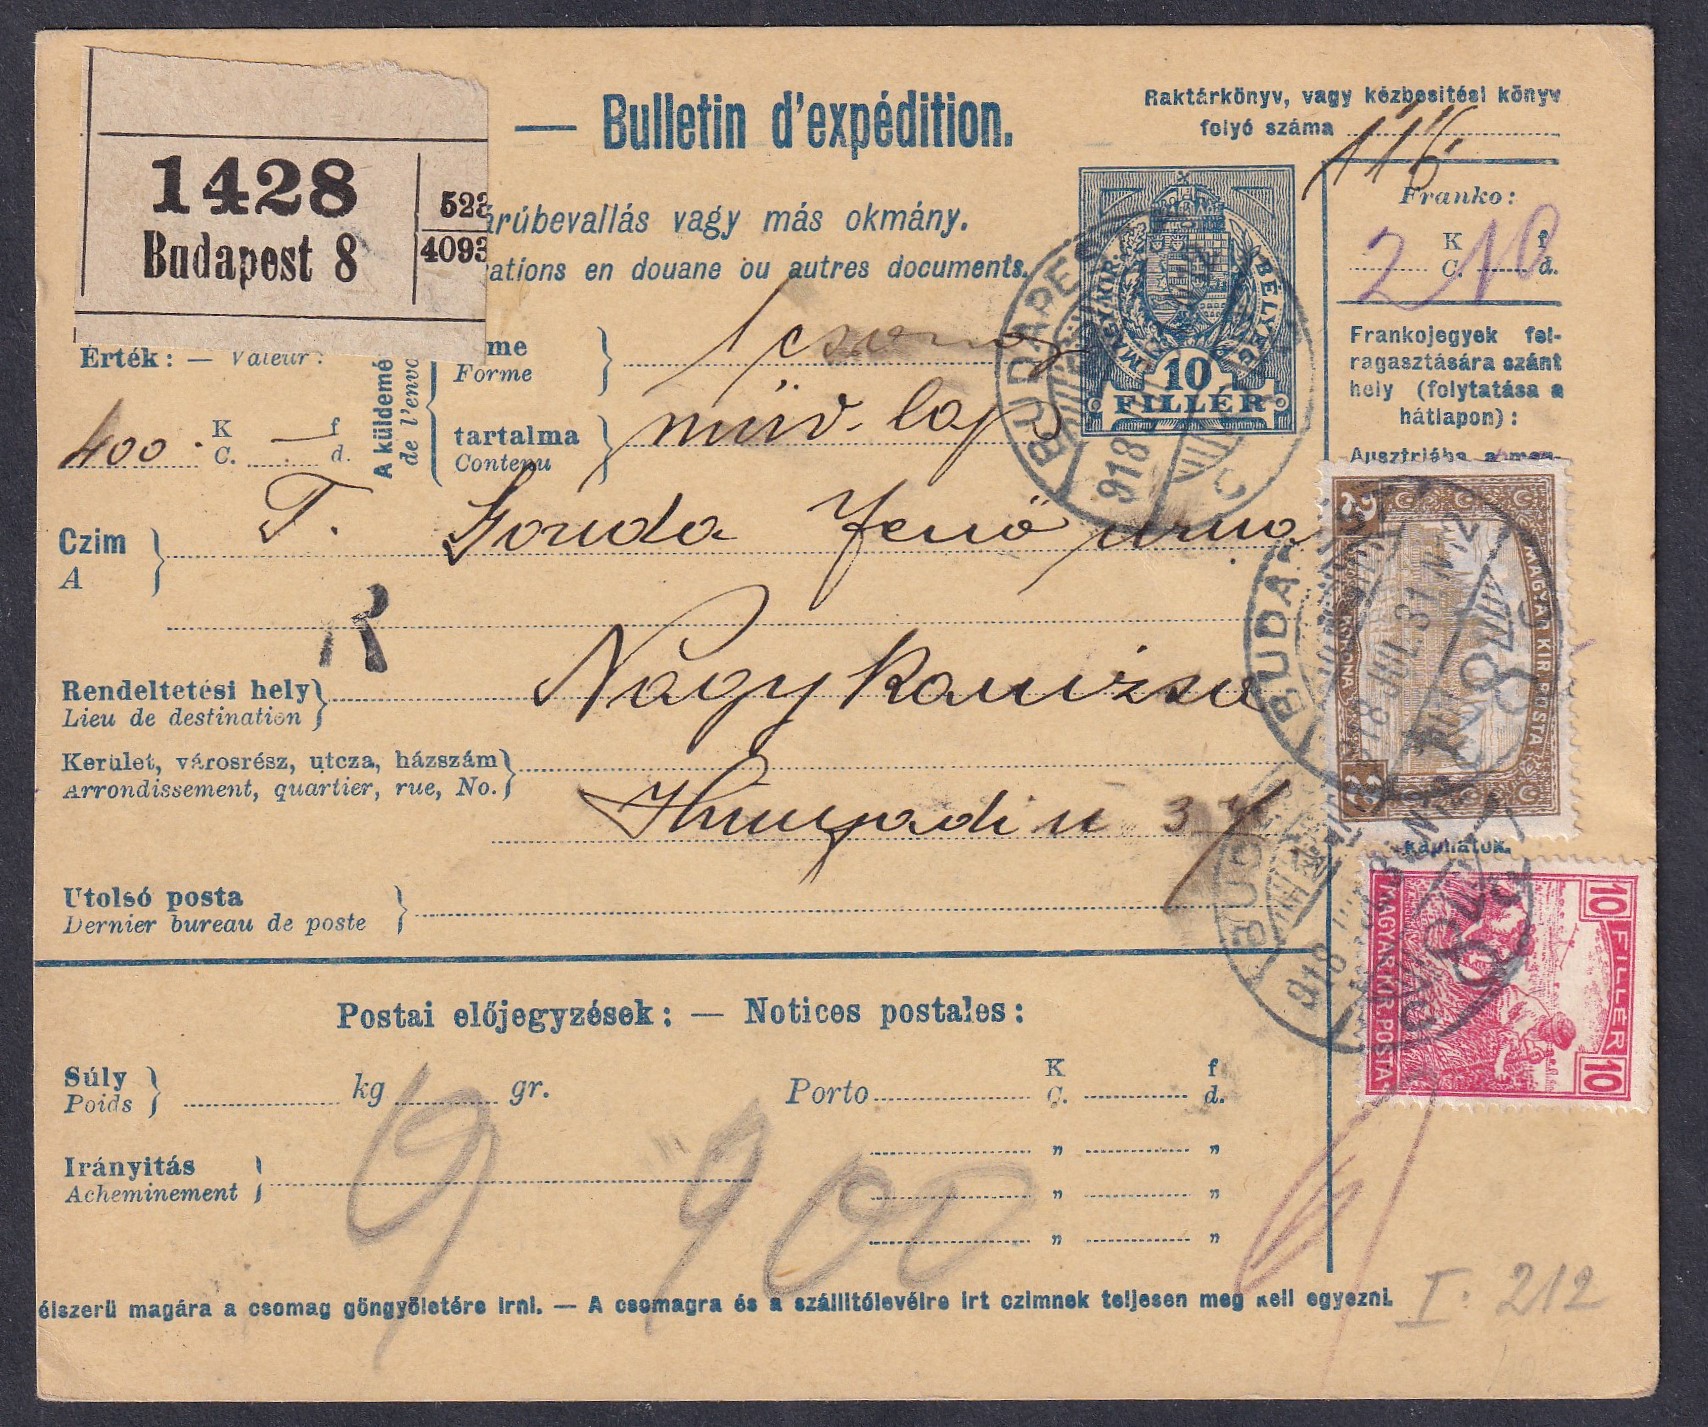 1428
Budapest 8
— Bulletin d'expédition.
árúbevallás vagy más okmány.
ations en douane ou autres documents.
Raktárkönyv, vagy kézbesitési könyv
folyó száma 116
Franko:
K f
C. d.
2 10
Frankojegyek fel-
ragasztására szánt
hely (folytatása a
hátlapon):
MAGYAR KIR. BÉLYEG
10
FILLÉR
Érték: — Valeur:
400. K — f
C. d.
A küldemé
de l'envo
me
Forme
1 csomag
tartalma
Contenu
műv. lap
Czim
A
T. Jenő urna
R
Rendeltetési hely
Lieu de destination
Nagykanizsa
Kerület, városrész, utcza, házszám
Arrondissement, quartier, rue, No.
Hunyadi u
Utolsó posta
Dernier bureau de poste
BUDAPEST
918
BUDA
918 JUL 31
8
MAGYAR KIR. POSTA
KORONA
2
2
kaphatók.
BUD
918
10 FILLÉR 10
MAGYAR KIR. POSTA
Postai előjegyzések: — Notices postales:
Súly
Poids
kg gr.
Porto K f
C. d.
„ „
Irányitás
Acheminement
„ „
„ „
9 900
élszerű magára a csomag göngyöletére irni. — A csomagra és a szállitólevélre irt czimnek teljesen meg kell egyezni.
I. 212